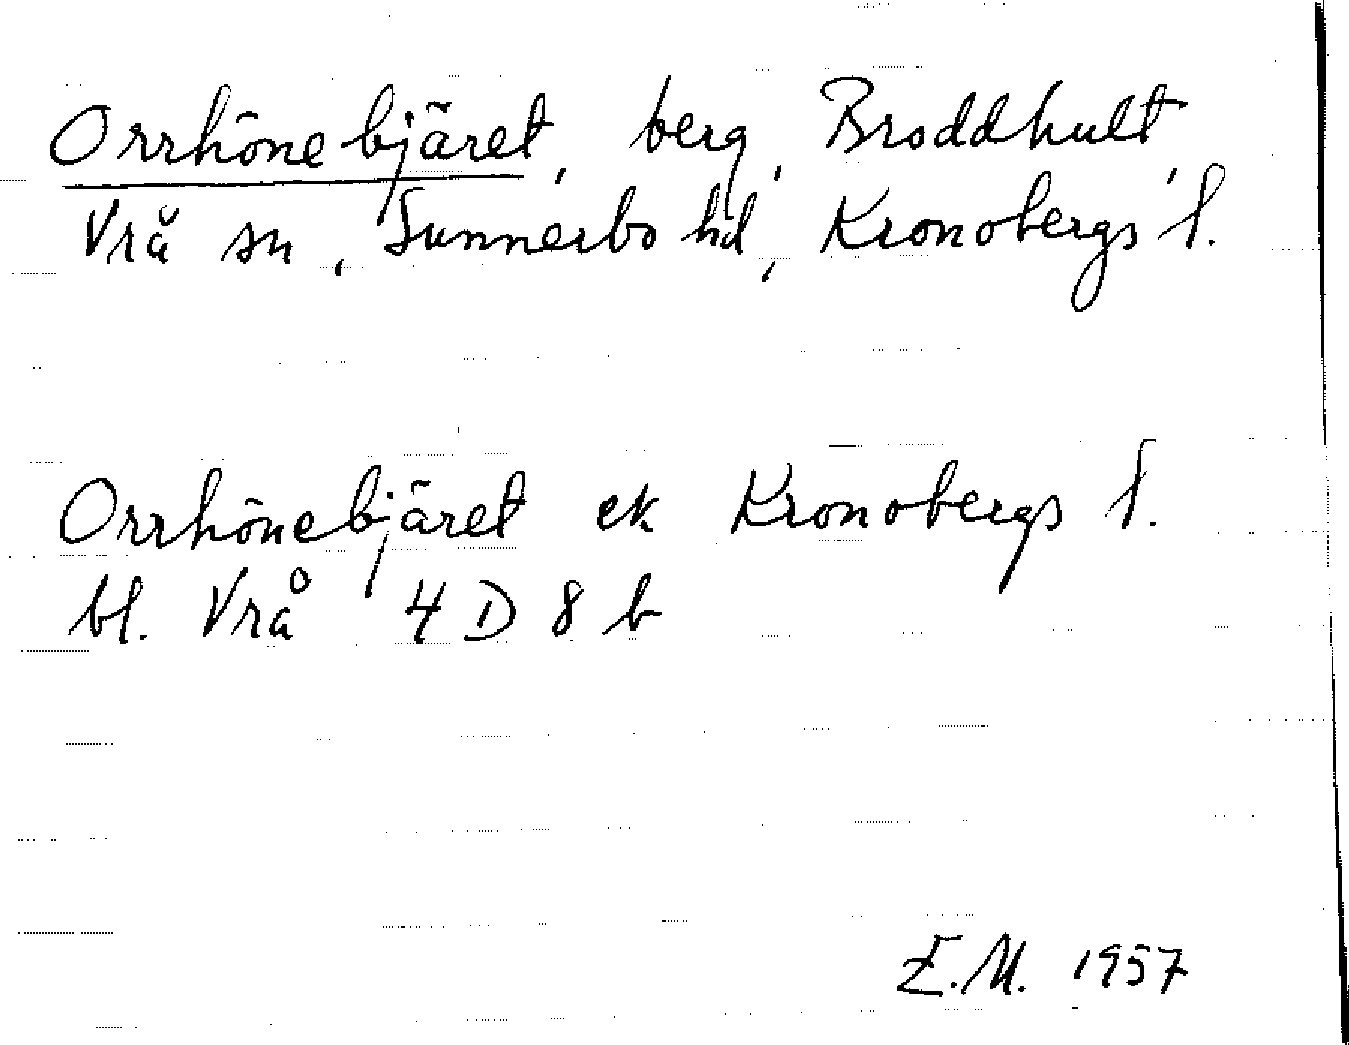 Orrhönebjäret, berg, Broddhult,
Vrå sn, Sunnerbo hd, Kronobergs l.
Orrhönebjäret ek Kronobergs l.
bl. Vrå 4 D 8 b
E.M. 1957